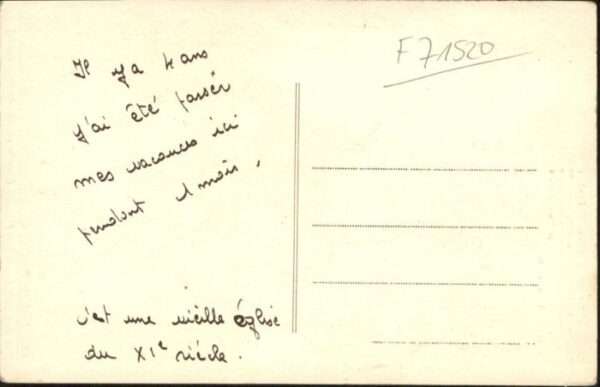 Il y a 4 ans
j'ai été passer
mes vacances ici
pendant 1 mois,
c'est une vieille église
du XIe siècle.
F 71520